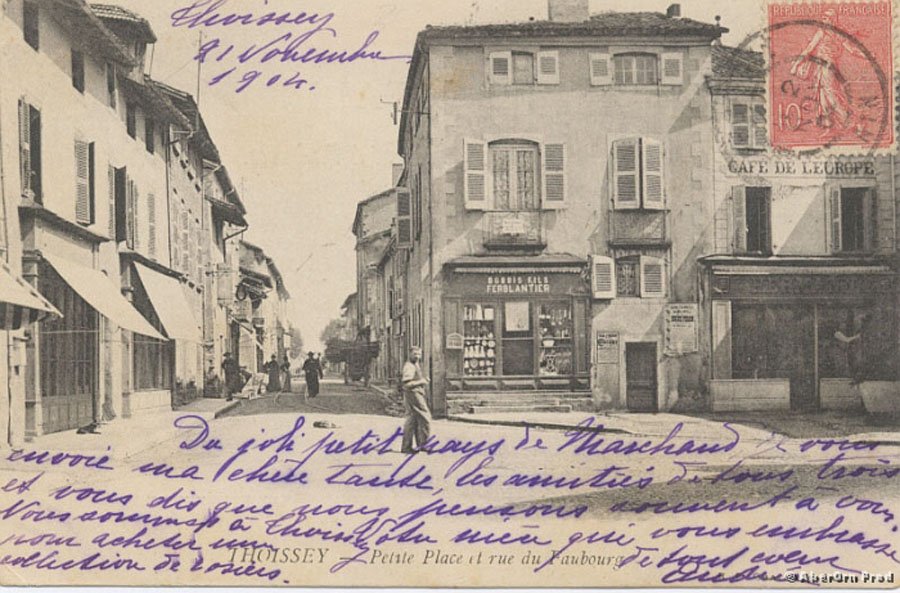 Thoissey
21 Novembre
1904.
REPUBLIQUE FRANÇAISE
10
AIN
CAFÉ DE L'EUROPE
DUBOIS FILS
FERBLANTIER
Du joli petit pays de Marchand je vous
envoie ma chère tante, les amitiés de tous trois
et vous dis que nous pensons souvent à vous.
Nous sommes à Thoissey Votre nièce qui vous embrasse
pour acheter une de tout cœur
collection de rosiers.
THOISSEY — Petite Place et rue du Faubourg